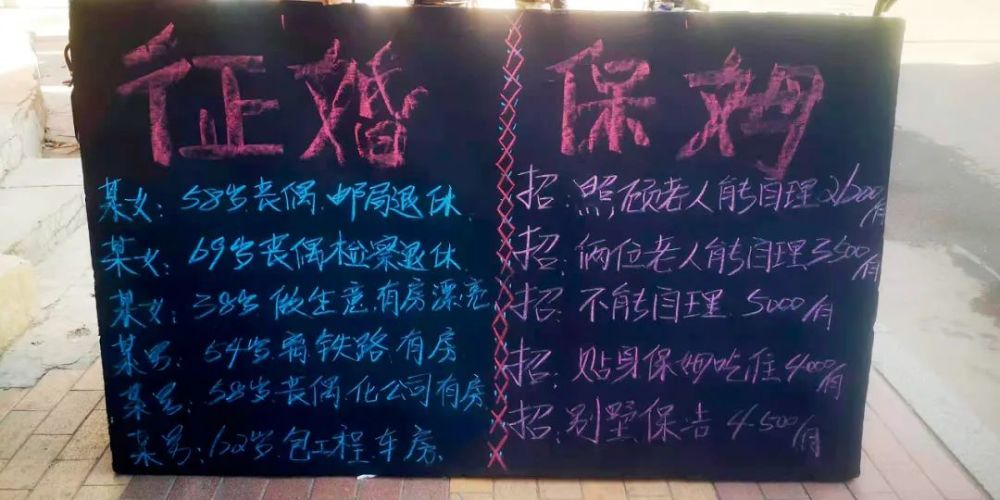 征婚
某女:58岁丧偶.邮局退休.
某女:69岁丧偶检察退休
某女:38岁做生意.有房漂亮
某男:54岁.离铁路.有房
某男:58岁丧偶.化公司有房
某男:62岁包工程.车房.
保姆
招:照顾老人能自理2600/月
招:俩位老人能自理3500/月
招:不能自理.5000/月
招:贴身保姆吃住4000/月
招:别墅保洁4500/月